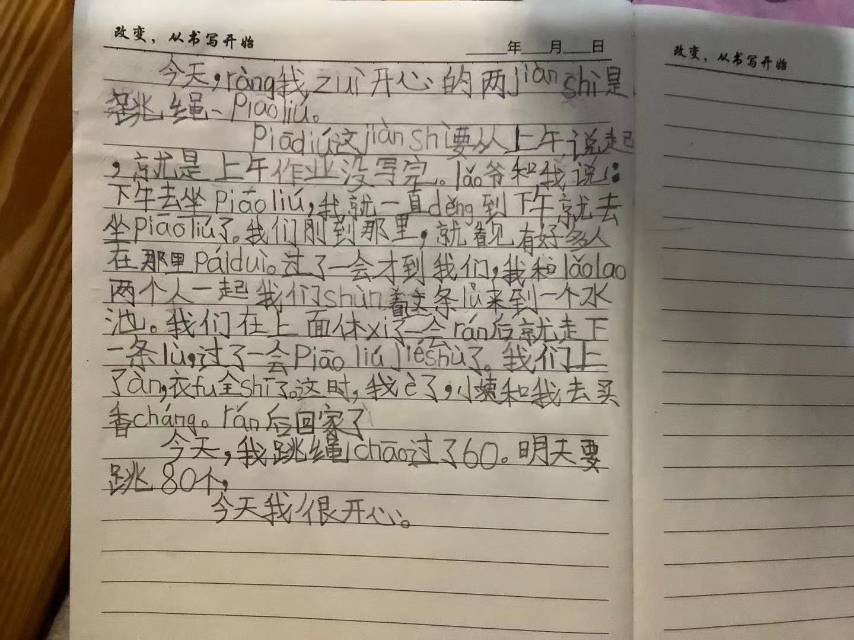 改变，从书写开始
年 月 日
今天，ràng我zuì开心的两jiàn shì是
跳绳、Piāoliú。
Piāoliú这jiàn shì要从上午说起
，就是上午作业没写完。lǎo爷和我说：
下午去坐Piāoliú，我就一直děng到下午就去
坐Piāoliú了。我们刚到那里，就看见有好多人
在那里Páiduì。过了一会才到我们，我和lǎolao
两个人一起我们shùn着这条lù来到一个水
池。我们在上面休xi了一会rán后就走下
一条lù，过了一会Piāo liú jiéshù了。我们上
了àn，衣fu全shī了。这时，我è了，小姨和我去买
香cháng。rán后回家了
今天，我跳绳chāo过了60。明天要
跳80个，
今天我很开心。
改变，从书写开始